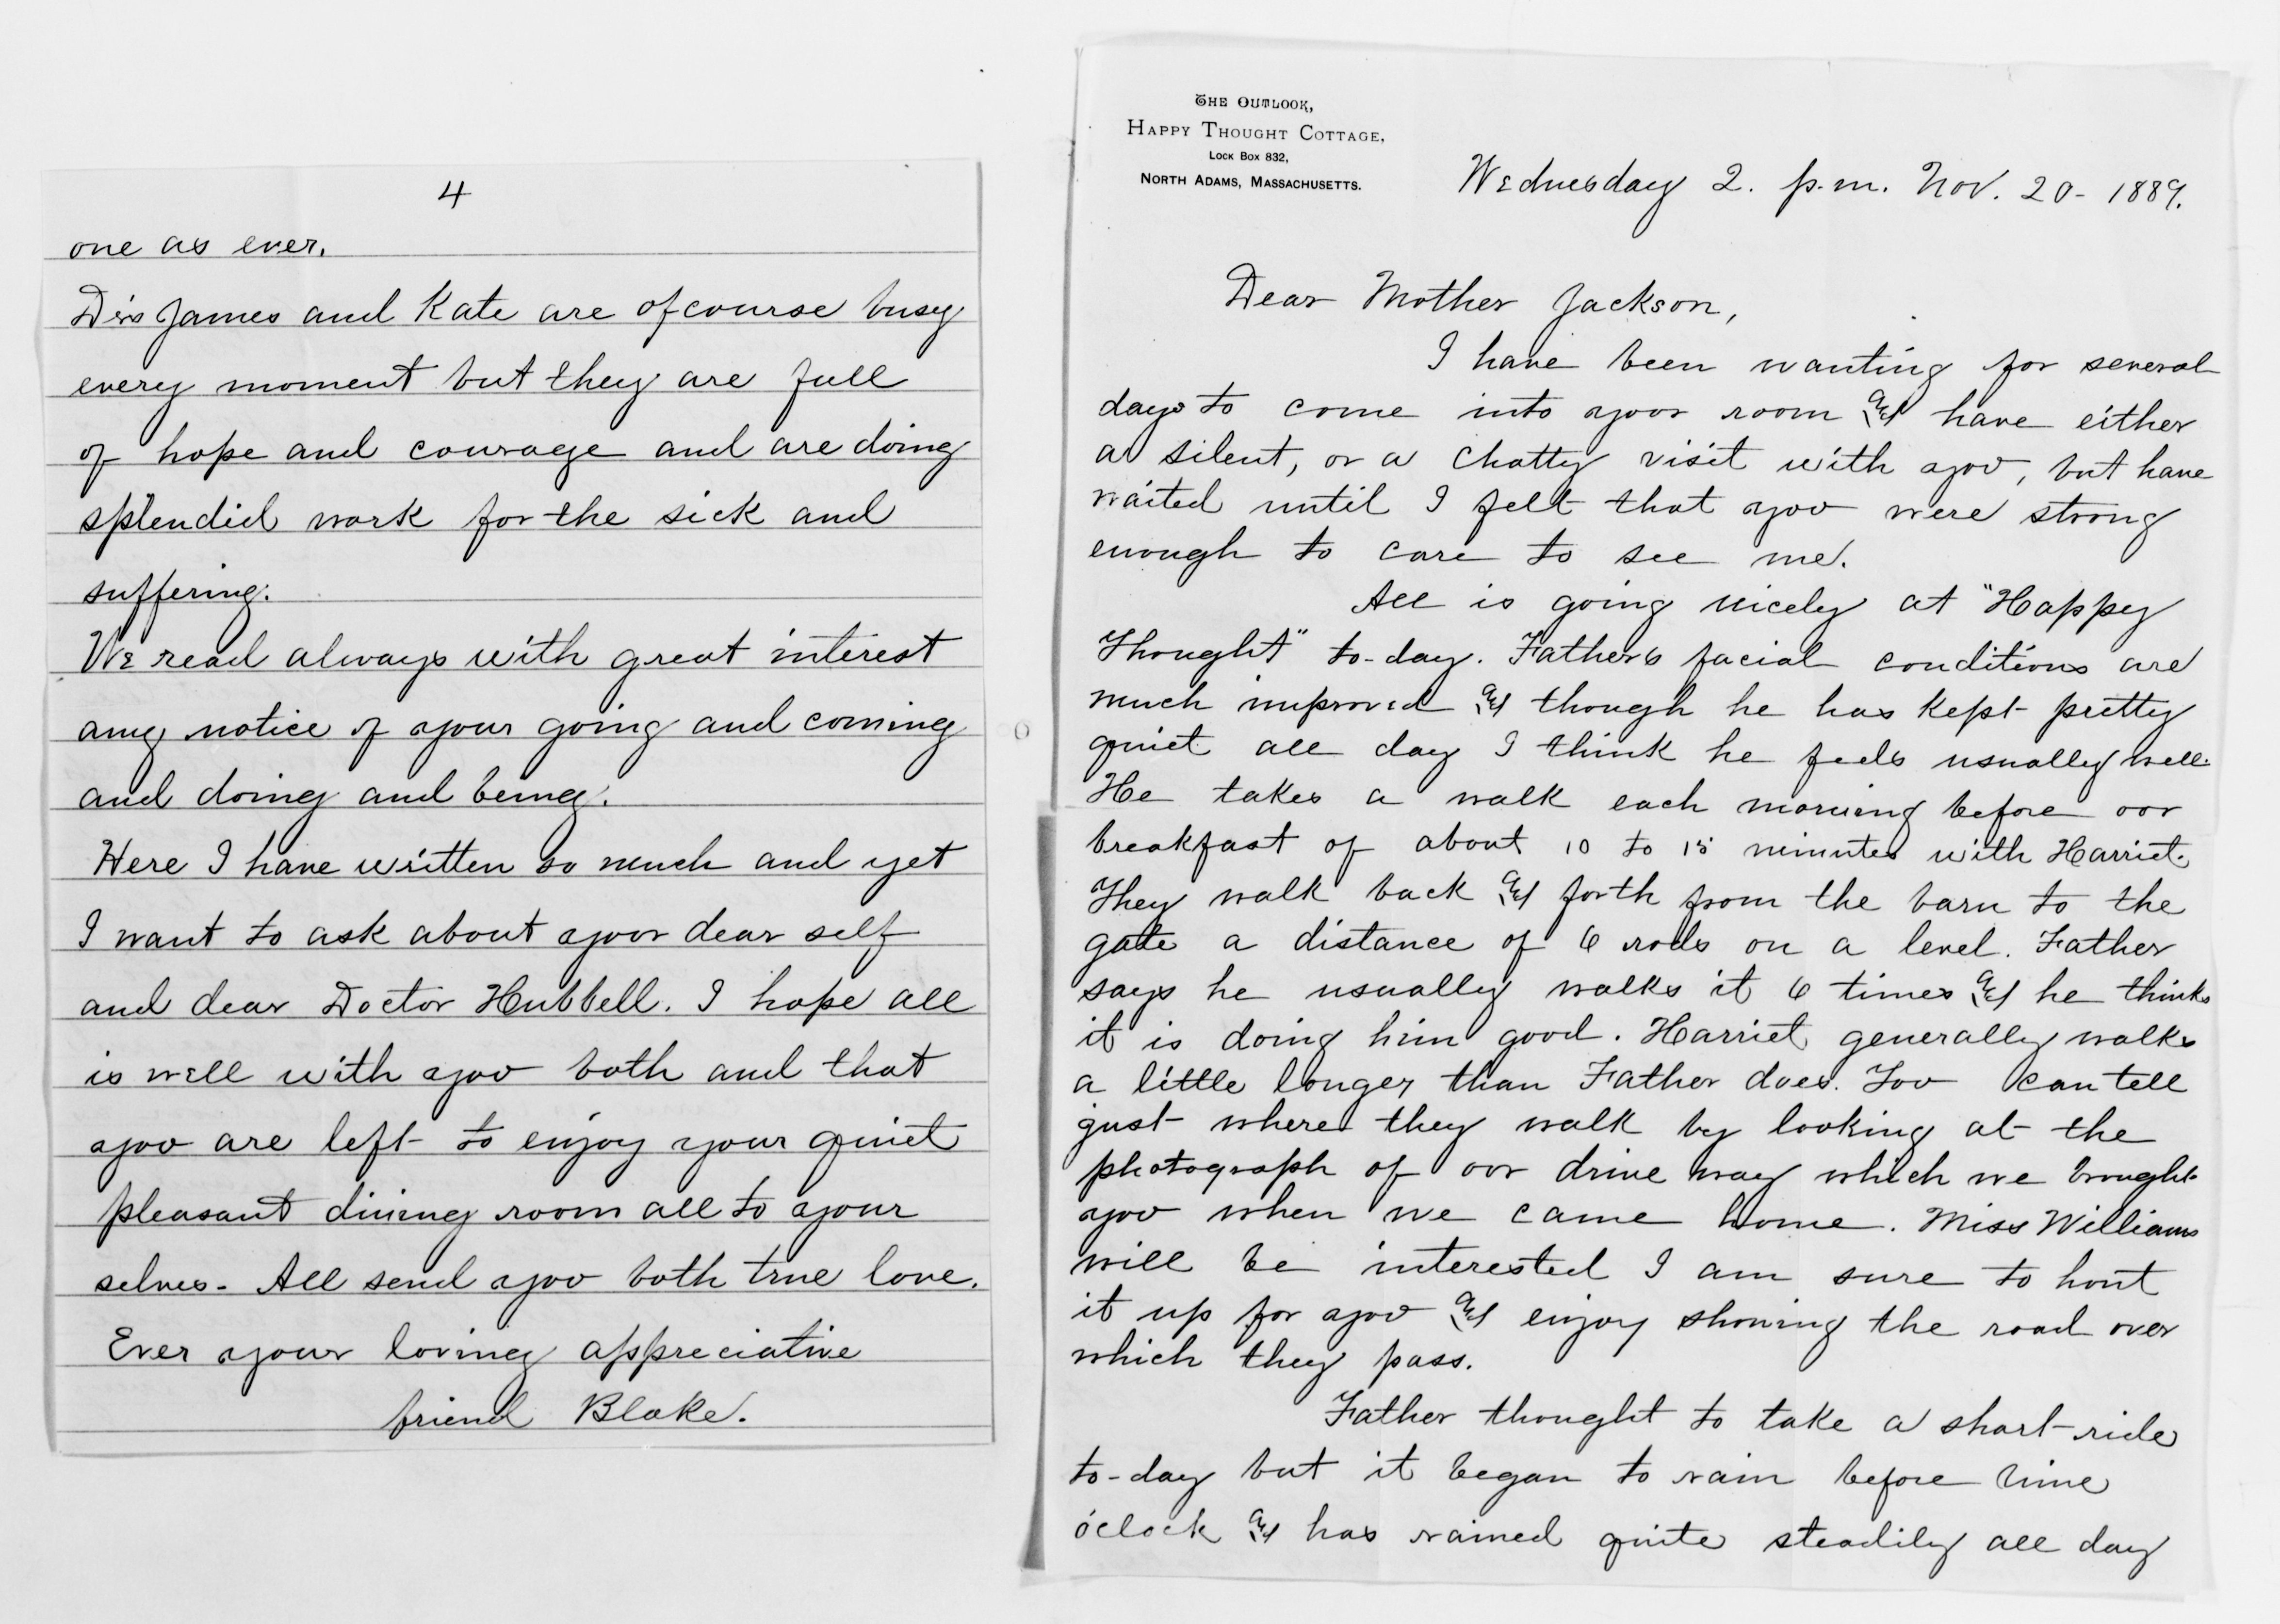 4
one as ever.
Drs James and Kate are ofcourse busy
every moment but they are full
of hope and courage and are doing
splendid work for the sick and
suffering.
We read always with great interest
any notice of your going and coming
and doing and being.
Here I have written so much and yet
I want to ask about your dear self
and dear Doctor Hubbell. I hope all
is well with you both and that
you are left to enjoy your quiet
pleasant dining room all to your
selves - All send you both true love.
Ever your loving appreciative
friend Blake.
THE OUTLOOK,
HAPPY THOUGHT COTTAGE,
LOCK BOX 832,
NORTH ADAMS, MASSACHUSETTS.
Wednesday 2. p.m. Nov. 20 - 1889.
Dear Mother Jackson,
I have been wanting for several
days to come into your room and have either
a silent, or a chatty visit with you, but have
waited until I felt that you were strong
enough to care to see me.
All is going nicely at "Happy
Thought" to-day. Fathers facial conditions are
much improved and though he has kept pretty
quiet all day I think he feels usually well.
He takes a walk each morning before our
breakfast of about 10 to 15 minutes with Harriet.
They walk back and forth from the barn to the
gate a distance of 6 rods on a level. Father
says he usually walks it 6 times and he thinks
it is doing him good. Harriet generally walks
a little longer than Father does. You can tell
just where they walk by looking at the
photograph of our drive way which we brought
you when we came home. Miss Williams
will be interested I am sure to hunt
it up for you and enjoy showing the road over
which they pass.
Father thought to take a short ride
to-day but it began to rain before nine
o'clock and has rained quite steadily all day